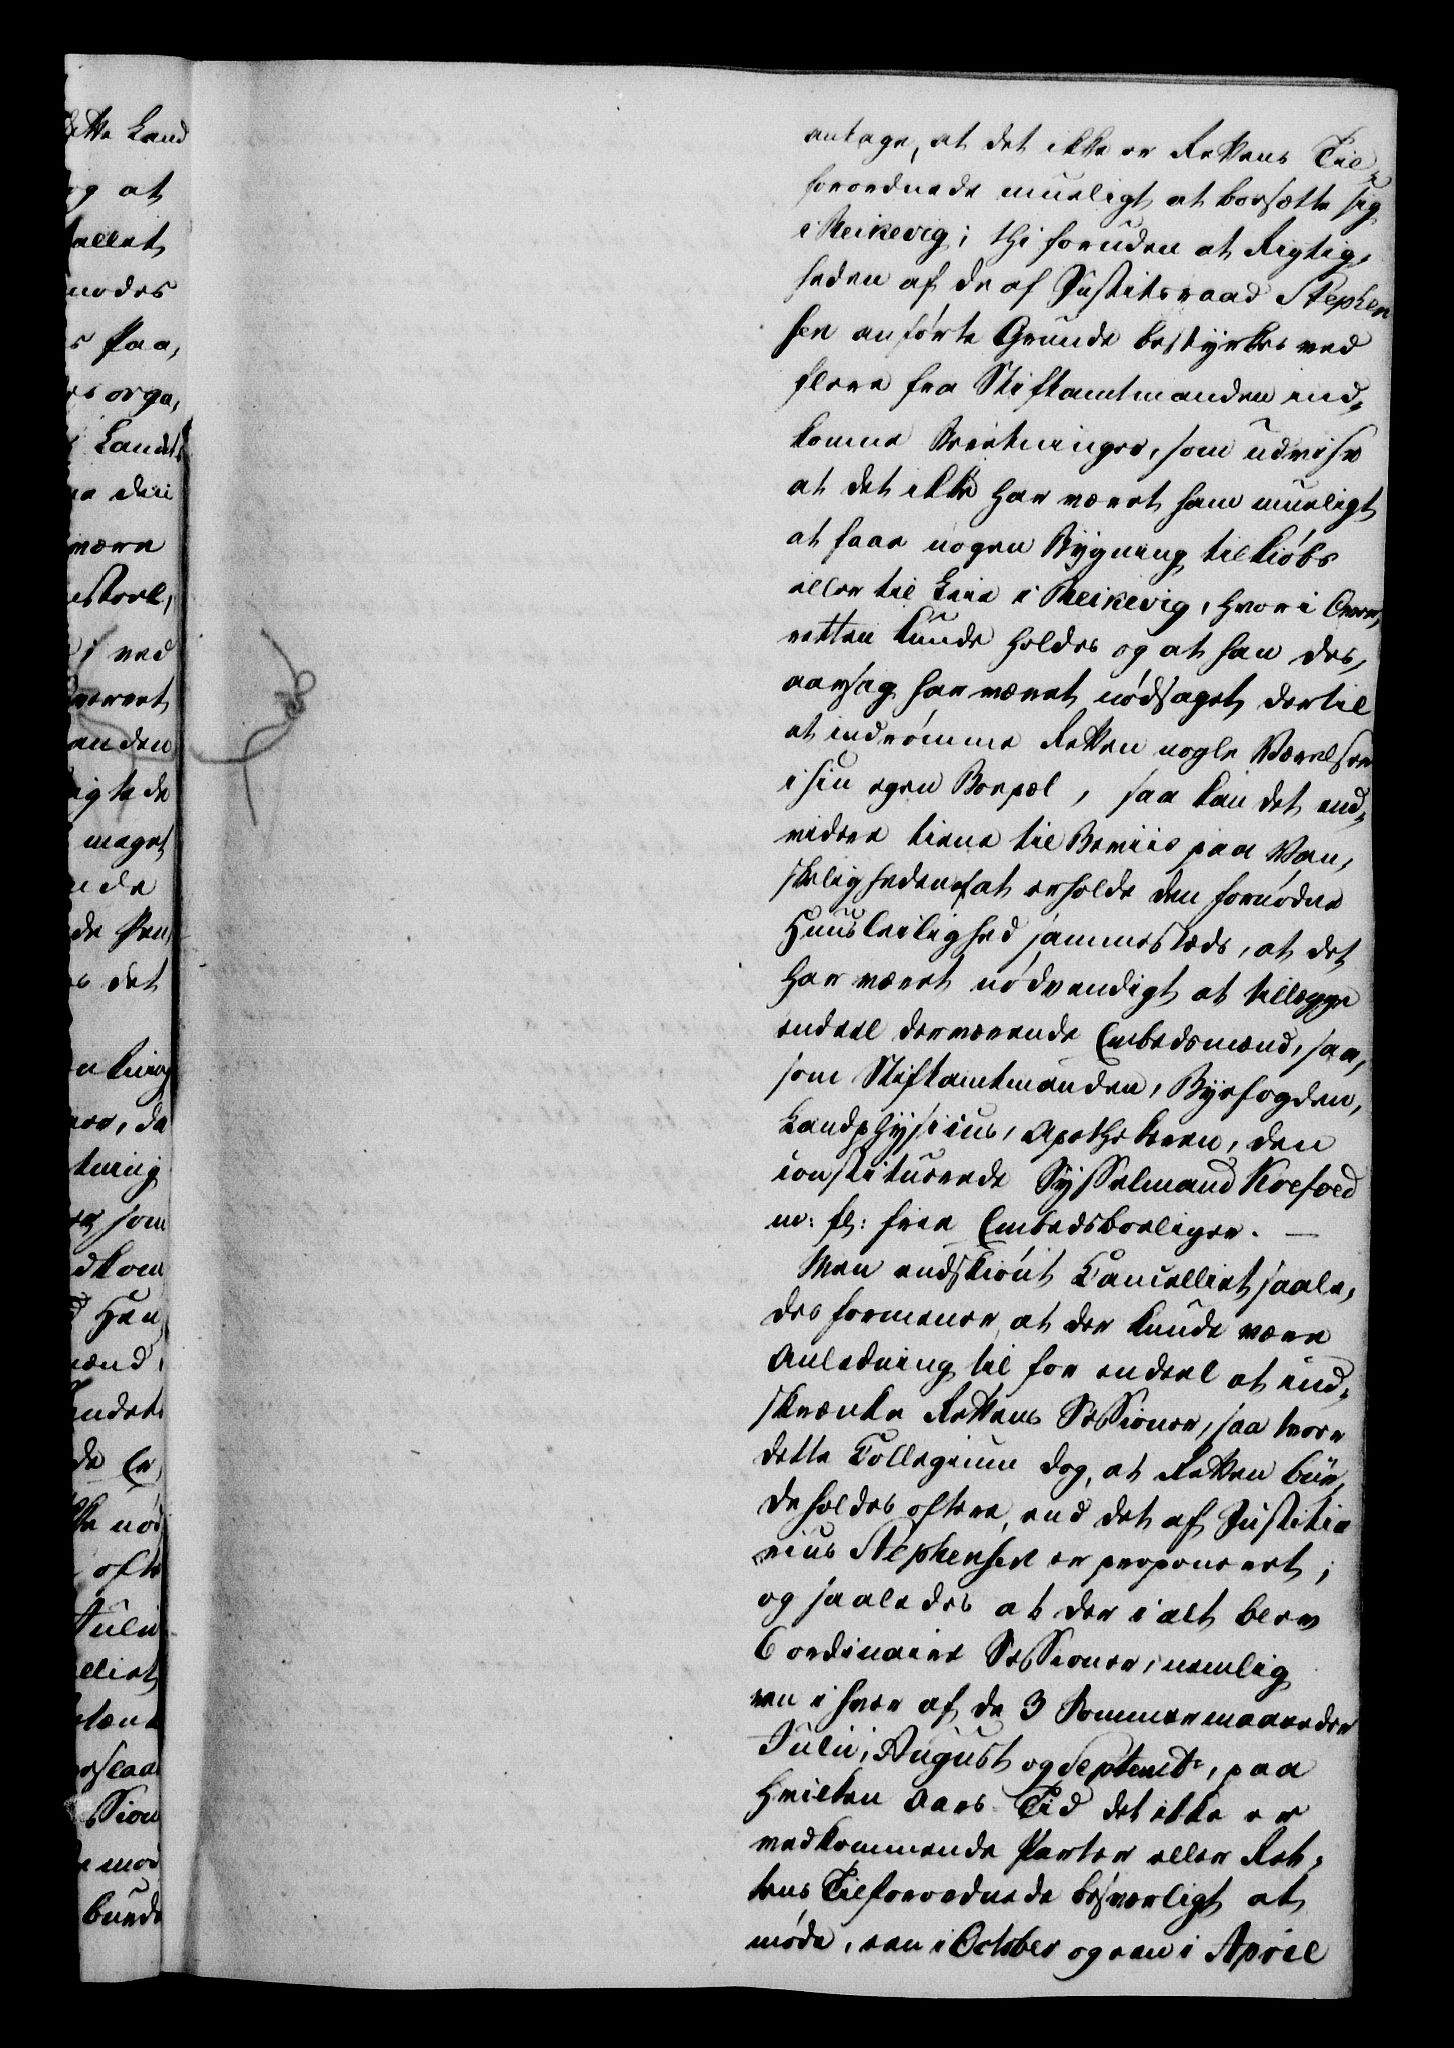 antage, at det ikke er Rettens Til-
forordnede mueligt at bosætte sig
i Reikevig; thi foruden at Rigtig-
heden af de af Justitsraad Stephen
sen anførte Grunde bestyrkes ved
flere fra Stiftamtmanden ind-
komne Beretninger, som udvise
at det ikke har været ham mueligt
at faae nogen Bygning til Kiøbs
eller til Leie i Reikevig, hvori Over-
retten kunde holdes og at han des-
aarsag har været nødsaget dertil
at indrømme Retten nogle Værelser
i sin egen Bopæl, saa kan det end-
videre tiene til Beviis paa Van-
skeligheden af at erholde den fornødne
Huusleilighed sammesteds, at det
har været nødvendigt at tillægge
endeel derværende Embedsmænd, saa-
som Stiftamtmanden, Byefogden,
Landphysicus, Apothekeren, den
constituerede Sysselmand Koefoed
m: fl: frie Embedsboeliger. —
Men endskiønt Cancelliet saale-
des formener at der kunde være
Anledning til for endeel at ind-
skrænke Rettens Sessioner, saa troer
dette Collegium dog, at Retten bur-
de holdes oftere, end det af Justitia
rius Stephensen er proponeret,
og saaledes at der i alt blev
6 ordinaire Sessioner, nemlig
een i hver af de 3 Sommermaaneder
Julii, August og Septembr, paa
hvilken Aars Tid det ikke er
vedkommende Parter eller Ret-
tens Tilforordnede besværligt at
møde, een i October og een i April